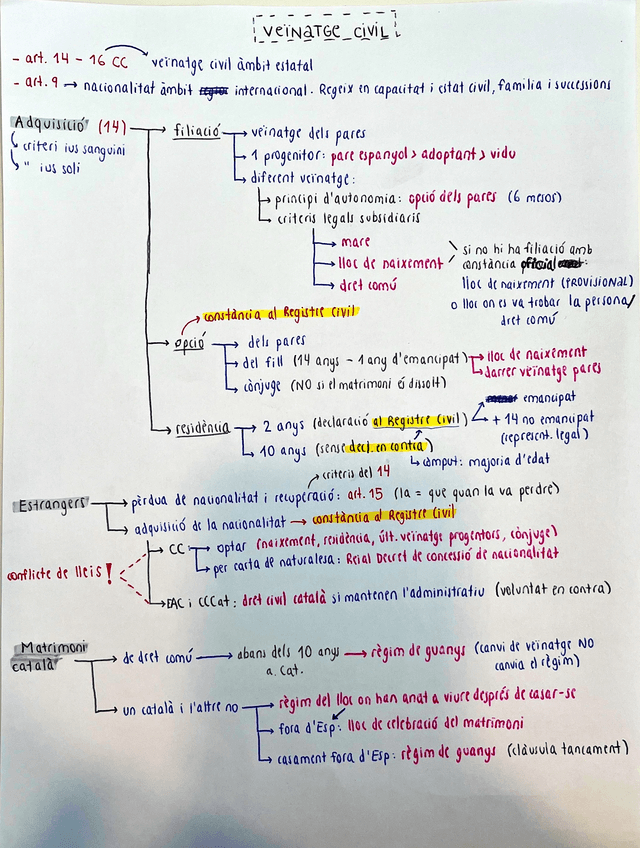 VEÏNATGE CIVIL
- art. 14 - 16 CC veïnatge civil àmbit estatal
- art. 9 → nacionalitat àmbit internacional. Regeix en capacitat i estat civil, familia i successions
Adquisició (14) → filiació → veïnatge dels pares
↳ criteri ius sanguini
↳ " ius soli
→ 1 progenitor: pare espanyol > adoptant > vidu
→ diferent veïnatge:
→ principi d'autonomia: opció dels pares (6 mesos)
→ criteris legals subsidiaris
→ mare
→ lloc de naixement
→ dret comú
si no hi ha filiació amb
constància oficial:
lloc de naixement (PROVISIONAL)
o lloc on es va trobar la persona/
dret comú
constància al Registre Civil
→ opció → dels pares
→ del fill (14 anys - 1 any d'emancipat) → lloc de naixement
→ darrer veïnatge pares
→ cònjuge (NO si el matrimoni é dissolt)
→ residència → 2 anys (declaració al Registre Civil)
emancipat
+ 14 no emancipat
(represent. legal)
→ 10 anys (sense decl. en contra)
↳ còmput: majoria d'edat
criteris del 14
Estrangers → pèrdua de nacionalitat i recuperació: art. 15 (la = que quan la va perdre)
→ adquisició de la nacionalitat → constància al Registre Civil
→ CC → optar (naixement, residència, últ. veïnatge progentors, cònjuge)
→ per carta de naturalesa: Reial Decret de concessió de nacionalitat
conflicte de lleis!
→ EAC i CCCat: dret civil català si mantenen l'administratiu (voluntat en contra)
Matrimoni
català → de dret comú → abans dels 10 anys → règim de guanys (canvi de veïnatge NO
a. Cat. canvia el règim)
→ un català i l'altre no → règim del lloc on han anat a viure després de casar-se
→ fora d'Esp: lloc de celebració del matrimoni
→ casament fora d'Esp: règim de guanys (clàusula tancament)